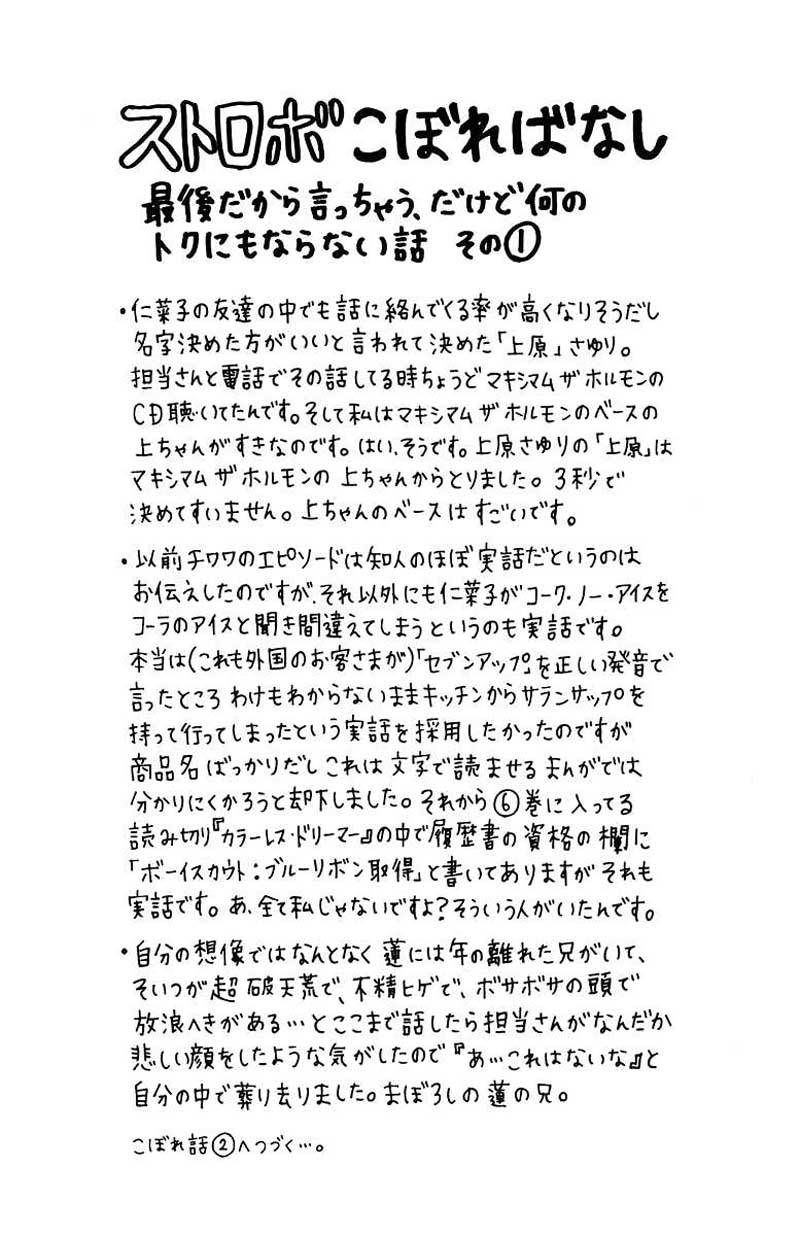 ストロボこぼればなし
最後だから言っちゃう、だけど何の
トクにもならない話 その①
・仁菜子の友達の中でも話に絡んでくる率が高くなりそうだし
名字決めた方がいいと言われて決めた「上原」さゆり。
担当さんと電話でその話してる時ちょうどマキシマム ザ ホルモンの
CD聴いてたんです。そして私はマキシマム ザ ホルモンのベースの
上ちゃんがすきなのです。はい、そうです。上原さゆりの「上原」は
マキシマム ザ ホルモンの 上ちゃんからとりました。3秒で
決めてすいません。上ちゃんのベースは すごいです。
・以前チワワのエピソードは知人のほぼ実話だというのは
お伝えしたのですが、それ以外にも仁菜子がコーク・ノー・アイスを
コーラのアイスと聞き間違えてしまうというのも実話です。
本当は(これも外国のお客さまが)「セブンアップ」を正しい発音で
言ったところ わけもわからないままキッチンからサランサップを
持って行ってしまったという実話を採用したかったのですが
商品名ばっかりだし これは文字で読ませる まんがでは
分かりにくかろうと却下しました。それから⑥巻に入ってる
読み切り『カラーレス・ドリーマー』の中で履歴書の資格の欄に
「ボーイスカウト:ブルーリボン取得」と書いてありますが それも
実話です。あ、全て私じゃないですよ?そういう人がいたんです。
・自分の想像ではなんとなく 蓮には年の離れた兄がいて、
そいつが超 破天荒で、不精ヒゲで、ボサボサの頭で
放浪へきがある…とここまで話したら担当さんがなんだか
悲しい顔をしたような気がしたので『あ…これはないな』と
自分の中で葬り去りました。まぼろしの蓮の兄。
こぼれ話②へつづく…。